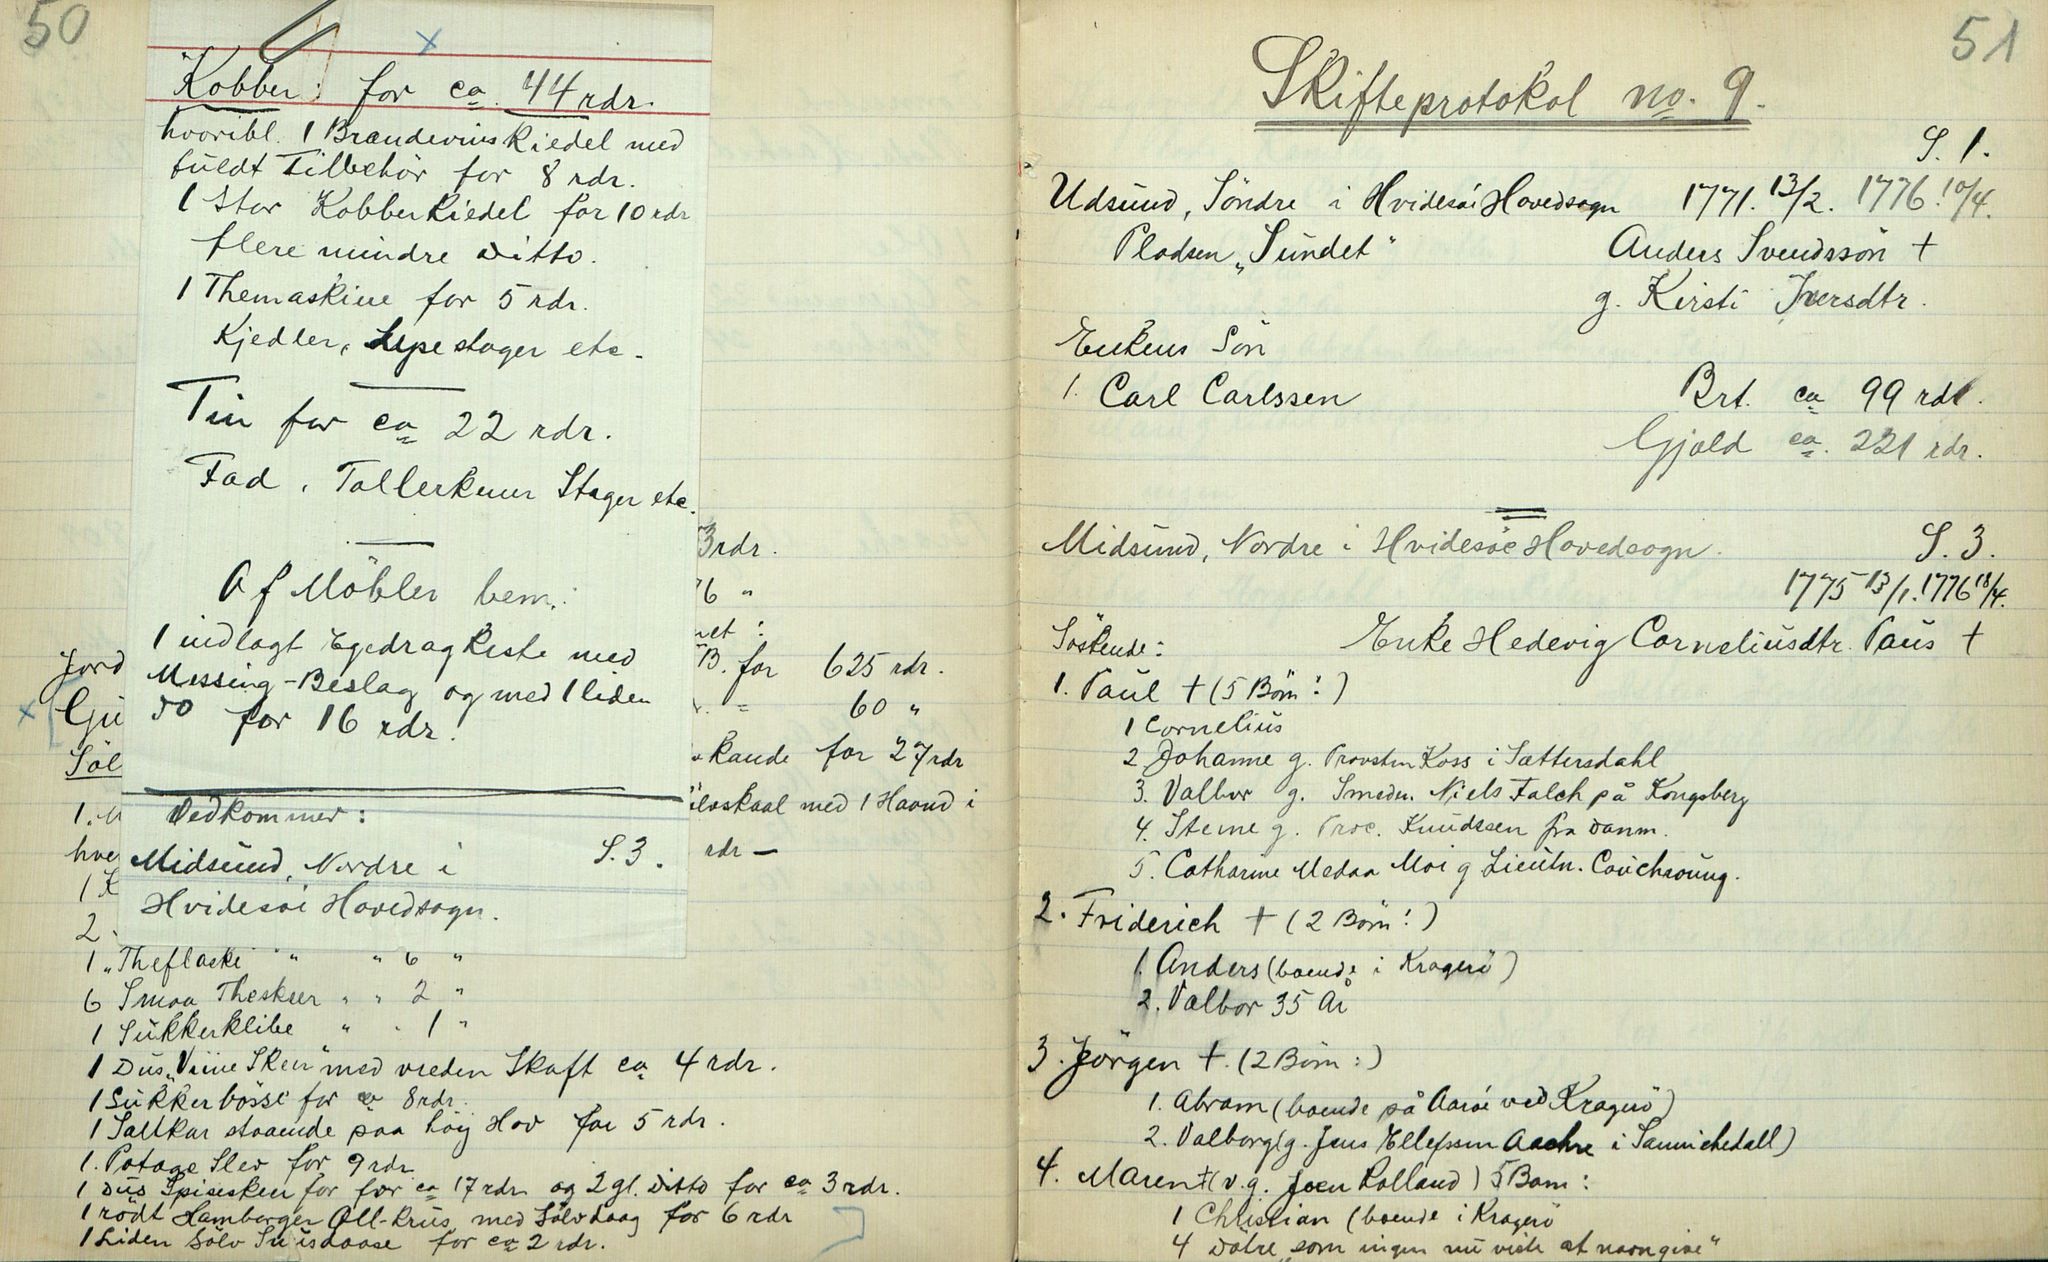 50
Kobber: for ca. 44 rdr.
hvoribl. 1 Brændeviins Kiedel med
fuldt Tilbehör for 8 rdr.
1 Stor Kobberkiedel for 10 rdr
flere mindre ditto.
1 Themaskine for 5 rdr.
Kjedler, Lysestager etc.
Tin for ca 22 rdr.
Fad, Tallerkener Stager etc.
Af Möbler bem.:
1 indlagt Egedragkiste med
Messing-Beslag og med 1 liden
do for 16 rdr.
Vedkommer:
Midsund, Nordre i S. 3.
Hvidesöe Hovedsogn.
3 rdr.
76 "
net:
Jord B. for 625 rdr.
Gju = 60 "
Söl kande for 27 rdr
1. M ölvskaal med 1 Haand i
hve rdr —
1 K
2
1 „Theflaske " " 6 "
6 Smaa Theskeer " " 2 "
1 Sukkerklibe " " 1 "
1 Dus „Viine Skeer" med vreden Skaft ca 4 rdr.
1 Sukkerbösse for ca 8 rdr.
1 Saltkar staaende paa höy Hov for 5 rdr.
1. Potage Slev for 9 rdr
1 Dus Spiseskeer for for ca 17 rdr og 2 gl. Ditto for ca 3 rdr.
1 rödt Hamborger Öll-Krus med Sölvlaag for 6 rdr
1 Liden Sölv Snusdaase for ca 2 rdr.
51
Skifteprotokol no. 9.
S. 1.
Udsund, Söndre i Hvidesöe Hovedsogn 1771. 13/2. 1776. 10/4.
Pladsen „Sundet" Anders Svendssön +
g. Kirsti Iversdtr.
Enkens Sön
1. Carl Carlssen Brt. ca 99 rdr.
Gjæld ca. 221 rdr.
Midsund, Nordre i Hvidesöe Hovedsogn. S. 3.
1775 13/1. 1776 18/4.
Söskende: Enke Hedevig Corneliusdtr. Paus +
1. Paul + (5 Börn:)
1 Cornelius
2 Johanne g. Provsten Koss i Sættersdahl
3. Valbor g. Smeden Niels Falch på Kongsberg
4. Stenie g. Proc. Knudssen fra Danm.
5. Catharine Medaa Moi g Lieutn. Couchroung.
2. Friderich + (2 Börn:)
1. Anders (boende i Kragerö)
2. Valbor 35 År
3. Jörgen +. (2 Börn:)
1. Abram (boende på Aaröe ved Kragerö)
2. Valborg (g. Jens Ellefssen Aachre i Sannichedall)
4. Maren + (v. g. Joen Lolland) 5 Börn:
1 Christian (boende i Kragerö
4 Dötre „som ingen nu viste at navngive"